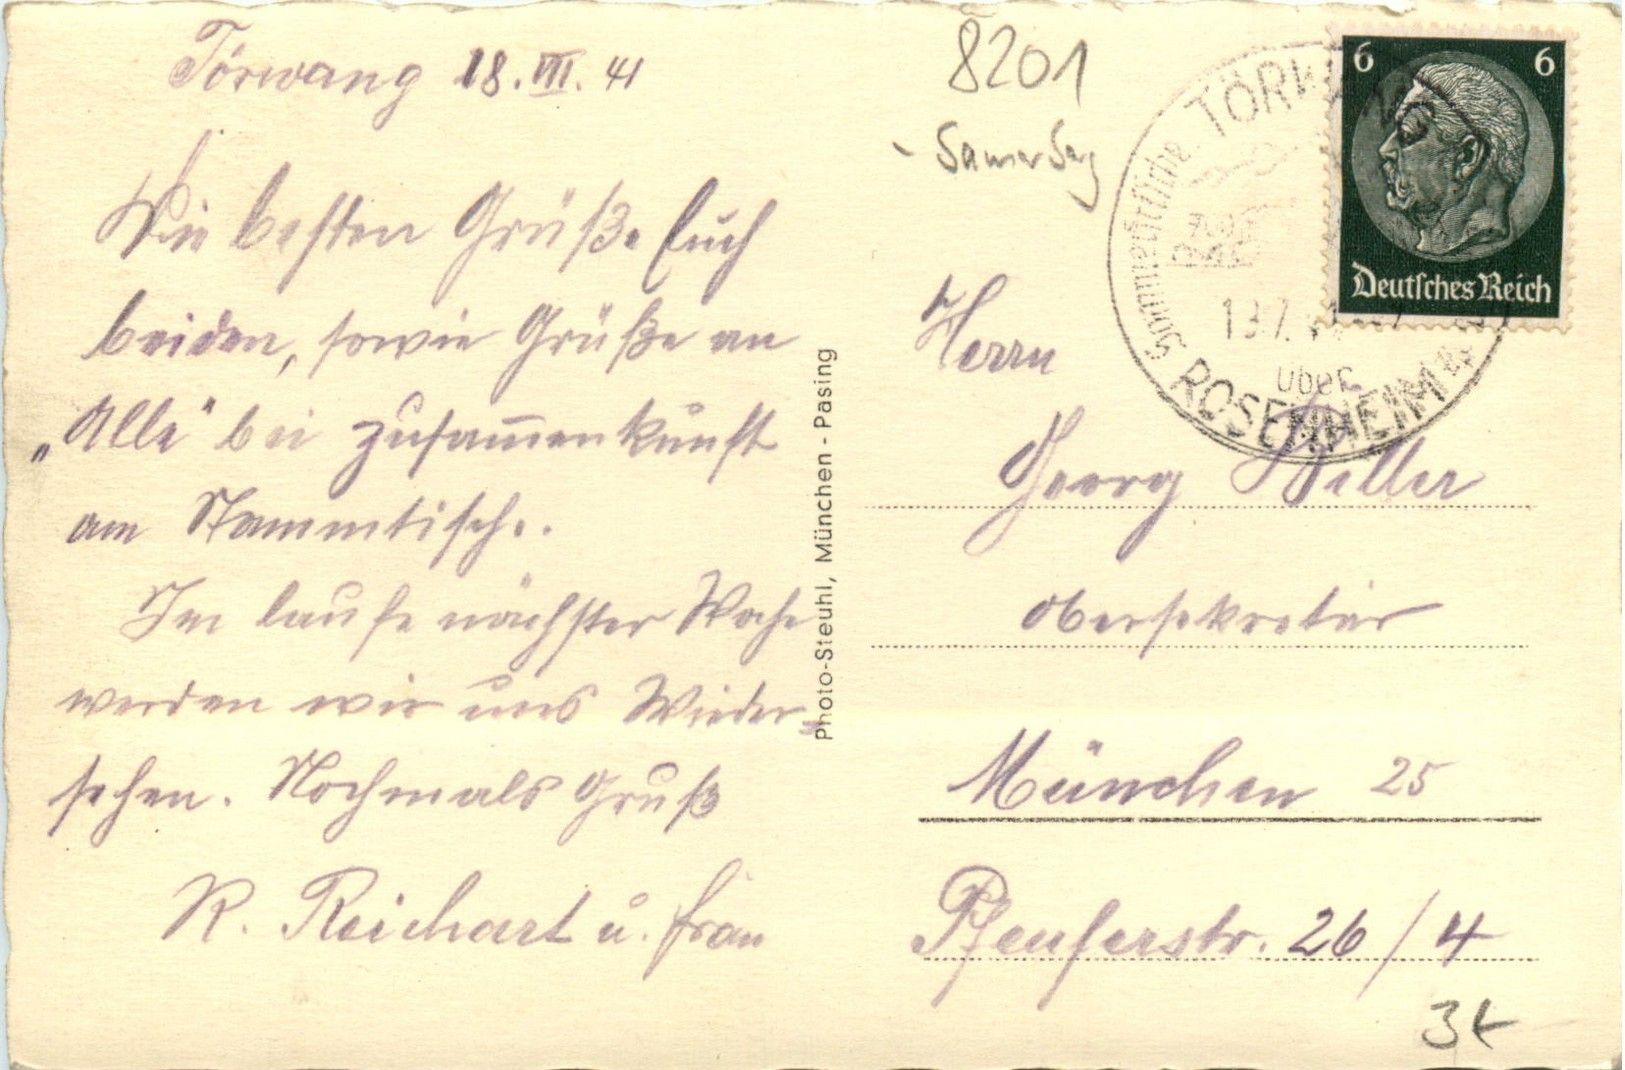 Törwang 18. VII. 41
Die besten Grüße Euch
beiden, sowie Grüße an
„Alle" bei zusam̅enkunft
am Stammtisch..
Im laufe nächster Woche
werden wir uns Wieder„
sehen. Nochmals Gruß
R. Reichart u. Frau
Photo-Steuhl, München - Pasing
8201
- Samerberg
6 6
Deutsches Reich
Sommerfrische TÖRWANG
über
ROSENHEIM
Herrn
Georg
Obersekretär
München 25
Pfeuferstr. 26/4